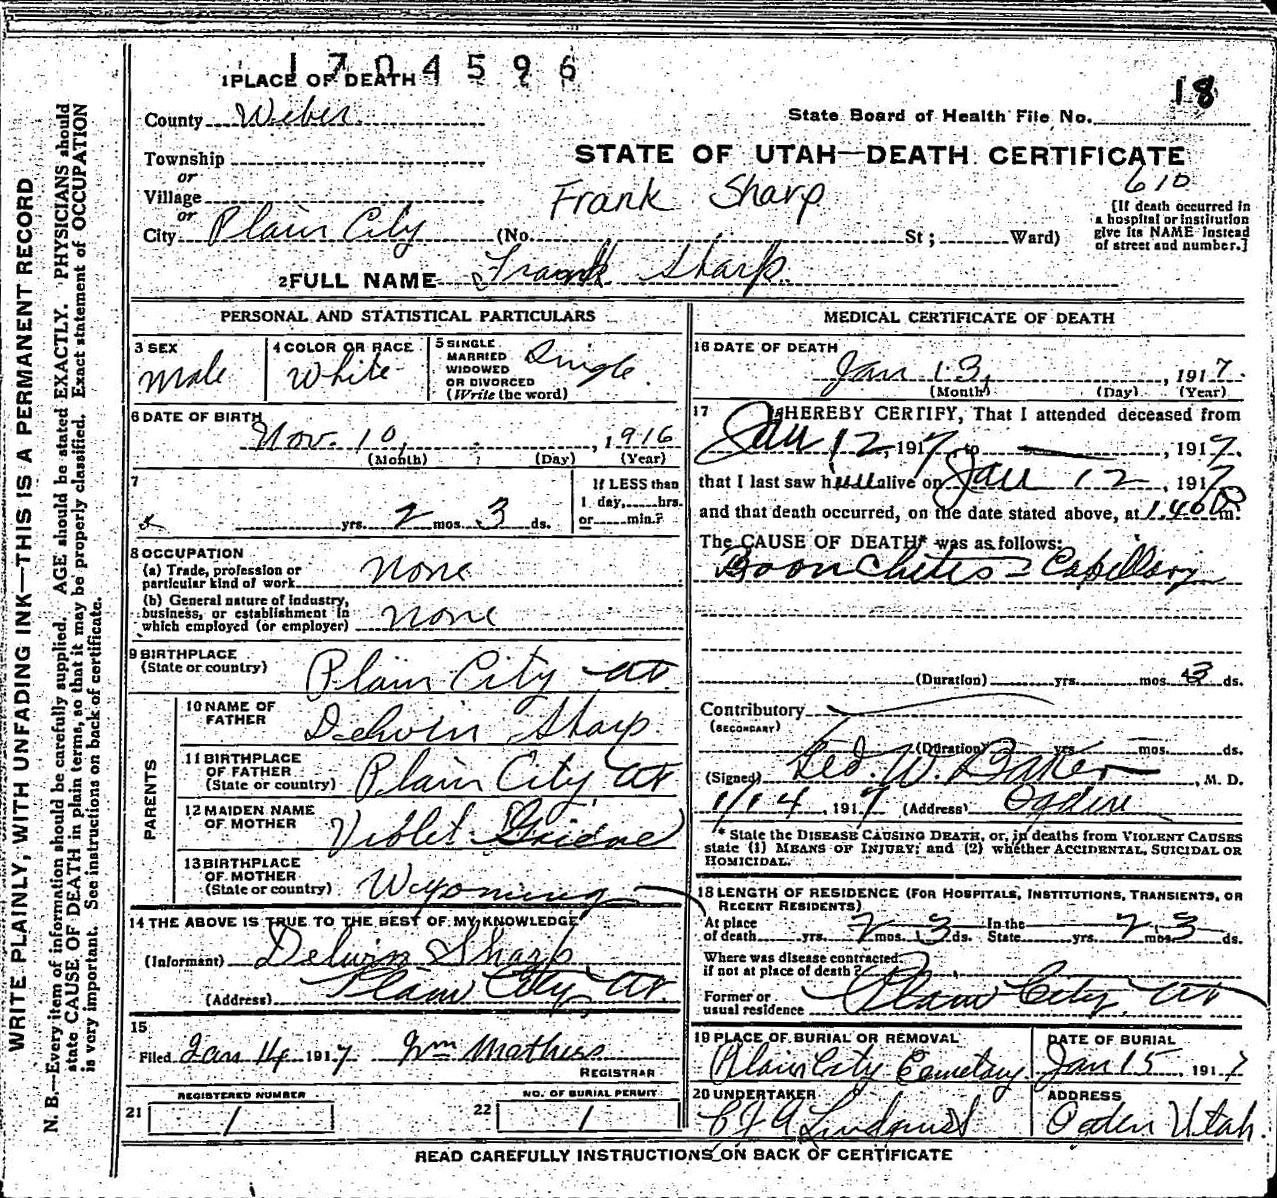 1704596
1 PLACE OF DEATH
18
County Weber
State Board of Health File No.
Township
or
Village
or
City Plain City (No. St; Ward)
STATE OF UTAH—DEATH CERTIFICATE
610
Frank Sharp
[If death occurred in
a hospital or institution
give its NAME instead
of street and number.]
2 FULL NAME Frank Sharp.
PERSONAL AND STATISTICAL PARTICULARS
3 SEX
Male
4 COLOR OR RACE
White
5 SINGLE
MARRIED
WIDOWED
OR DIVORCED
(Write the word)
Single.
6 DATE OF BIRTH
Nov. 10, 1916
(Month) (Day) (Year)
7
yrs. 2 mos. 3 ds.
If LESS than
1 day, hrs.
or min.?
8 OCCUPATION
(a) Trade, profession or
particular kind of work None
(b) General nature of industry,
business, or establishment in
which employed (or employer) None
9 BIRTHPLACE
(State or country) Plain City Ut.
PARENTS
10 NAME OF
FATHER Delwin Sharp
11 BIRTHPLACE
OF FATHER
(State or country) Plain City Ut
12 MAIDEN NAME
OF MOTHER Violet
13 BIRTHPLACE
OF MOTHER
(State or country) Wyoming
14 THE ABOVE IS TRUE TO THE BEST OF MY KNOWLEDGE
(Informant) Delwin Sharp
(Address) Plain City, Ut.
15
Filed Jan 14 1917 Wm
REGISTRAR
REGISTERED NUMBER
21 1
NO. OF BURIAL PERMIT
22 1
MEDICAL CERTIFICATE OF DEATH
16 DATE OF DEATH
Jan 13, 1917.
(Month) (Day) (Year)
17 I HEREBY CERTIFY, That I attended deceased from
Jan 12, 1917, to , 1917.
that I last saw him alive on Jan 12, 1917
and that death occurred, on the date stated above, at m.
The CAUSE OF DEATH* was as follows:
Boonchetes - Capillary
(Duration) yrs. mos. 3 ds.
Contributory
(SECONDARY)
(Duration) yrs. mos. ds.
(Signed) Geo. W. Baker, M. D.
1/14, 1917 (Address) Ogden
* State the DISEASE CAUSING DEATH, or, in deaths from VIOLENT CAUSES
state (1) MEANS OF INJURY; and (2) whether ACCIDENTAL, SUICIDAL OR
HOMICIDAL.
18 LENGTH OF RESIDENCE (FOR HOSPITALS, INSTITUTIONS, TRANSIENTS, OR
RECENT RESIDENTS)
At place In the
of death yrs. 2 mos. 3 ds. State yrs. 2 mos. 3 ds.
Where was disease contracted,
if not at place of death?
Former or
usual residence Plain City, Ut
19 PLACE OF BURIAL OR REMOVAL
Plain City Cemetary
DATE OF BURIAL
Jan 15, 1917
20 UNDERTAKER
ADDRESS
Ogden Utah.
READ CAREFULLY INSTRUCTIONS ON BACK OF CERTIFICATE
WRITE PLAINLY, WITH UNFADING INK—THIS IS A PERMANENT RECORD
N. B.—Every item of information should be carefully supplied. AGE should be stated EXACTLY. PHYSICIANS should
state CAUSE OF DEATH in plain terms, so that it may be properly classified. Exact statement of OCCUPATION
is very important. See instructions on back of certificate.